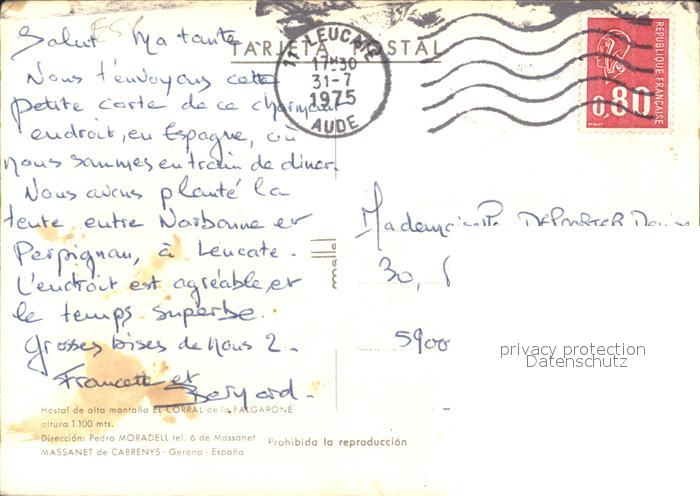 Salut Ma tante
Nous t'envoyons cette
petite carte de ce charmant
endroit, en Espagne, où
nous sommes en train de diner.
Nous avons planté la
tente entre Narbonne et
Perpignan, à Leucate.
L'endroit est agréable, et
le temps superbe.
Grosses bises de nous 2.
Francette et
Bernard.
TARJETA POSTAL
11 LEUCATE
17H30
31-7
1975
AUDE
REPUBLIQUE FRANÇAISE
0,80
Mademoiselle
30,
5900
privacy protection
Datenschutz
Hostal de alta montaña EL CORRAL de la FALGARONE
altura 1.100 mts.
Dirección: Pedro MORADELL tel. 6 de Massanet
MASSANET de CABRENYS - Gerona - España
Prohibida la reproducción